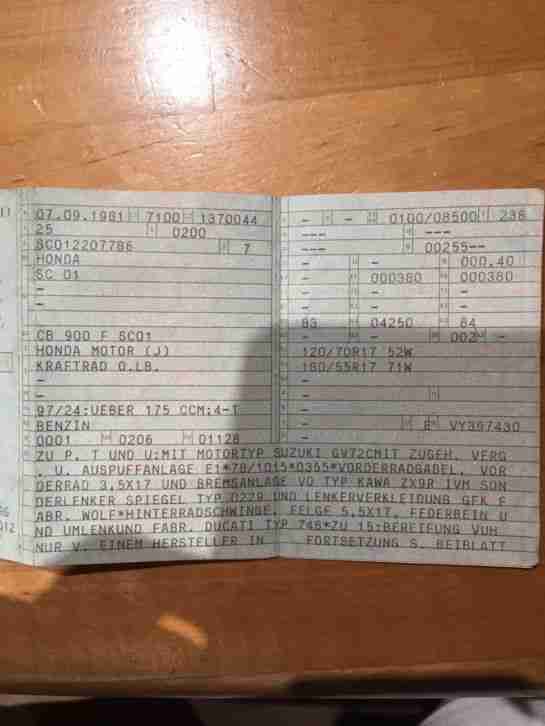 07.09.1981 7100 1370044
25 0200
SC012207786 7
HONDA
SC 01
-
-
CB 900 F SC01
HONDA MOTOR (J)
KRAFTRAD O.LB.
-
-
97/24:UEBER 175 CCM:4-T
BENZIN
0001 M 0206 01128
- - 0100/08500 238
--- ---
--- 00255--
- - 000,40
- 000380 000380
- - -
- - -
83 04250 84
- - 002 -
120/70R17 52W
180/55R17 71W
- -
- -
- -
- E VY367430
ZU P, T UND U:MIT MOTORTYP SUZUKI GV72CMIT ZUGEH. VERG
. U. AUSPUFFANLAGE E1*78/1015*0365*VORDERRADGABEL, VOR
DERRAD 3,5X17 UND BREMSANLAGE VO TYP KAWA ZX9R IVM SON
DERLENKER SPIEGEL TYP D229 UND LENKERVERKLEIDUNG GFK F
ABR. WOLF*HINTERRADSCHWINGE, FELGE 5,5X17, FEDERBEIN U
ND UMLENKUND FABR. DUCATI TYP 748*ZU 15:BEREIFUNG VUH
NUR V. EINEM HERSTELLER IN FORTSETZUNG S. BEIBLATT